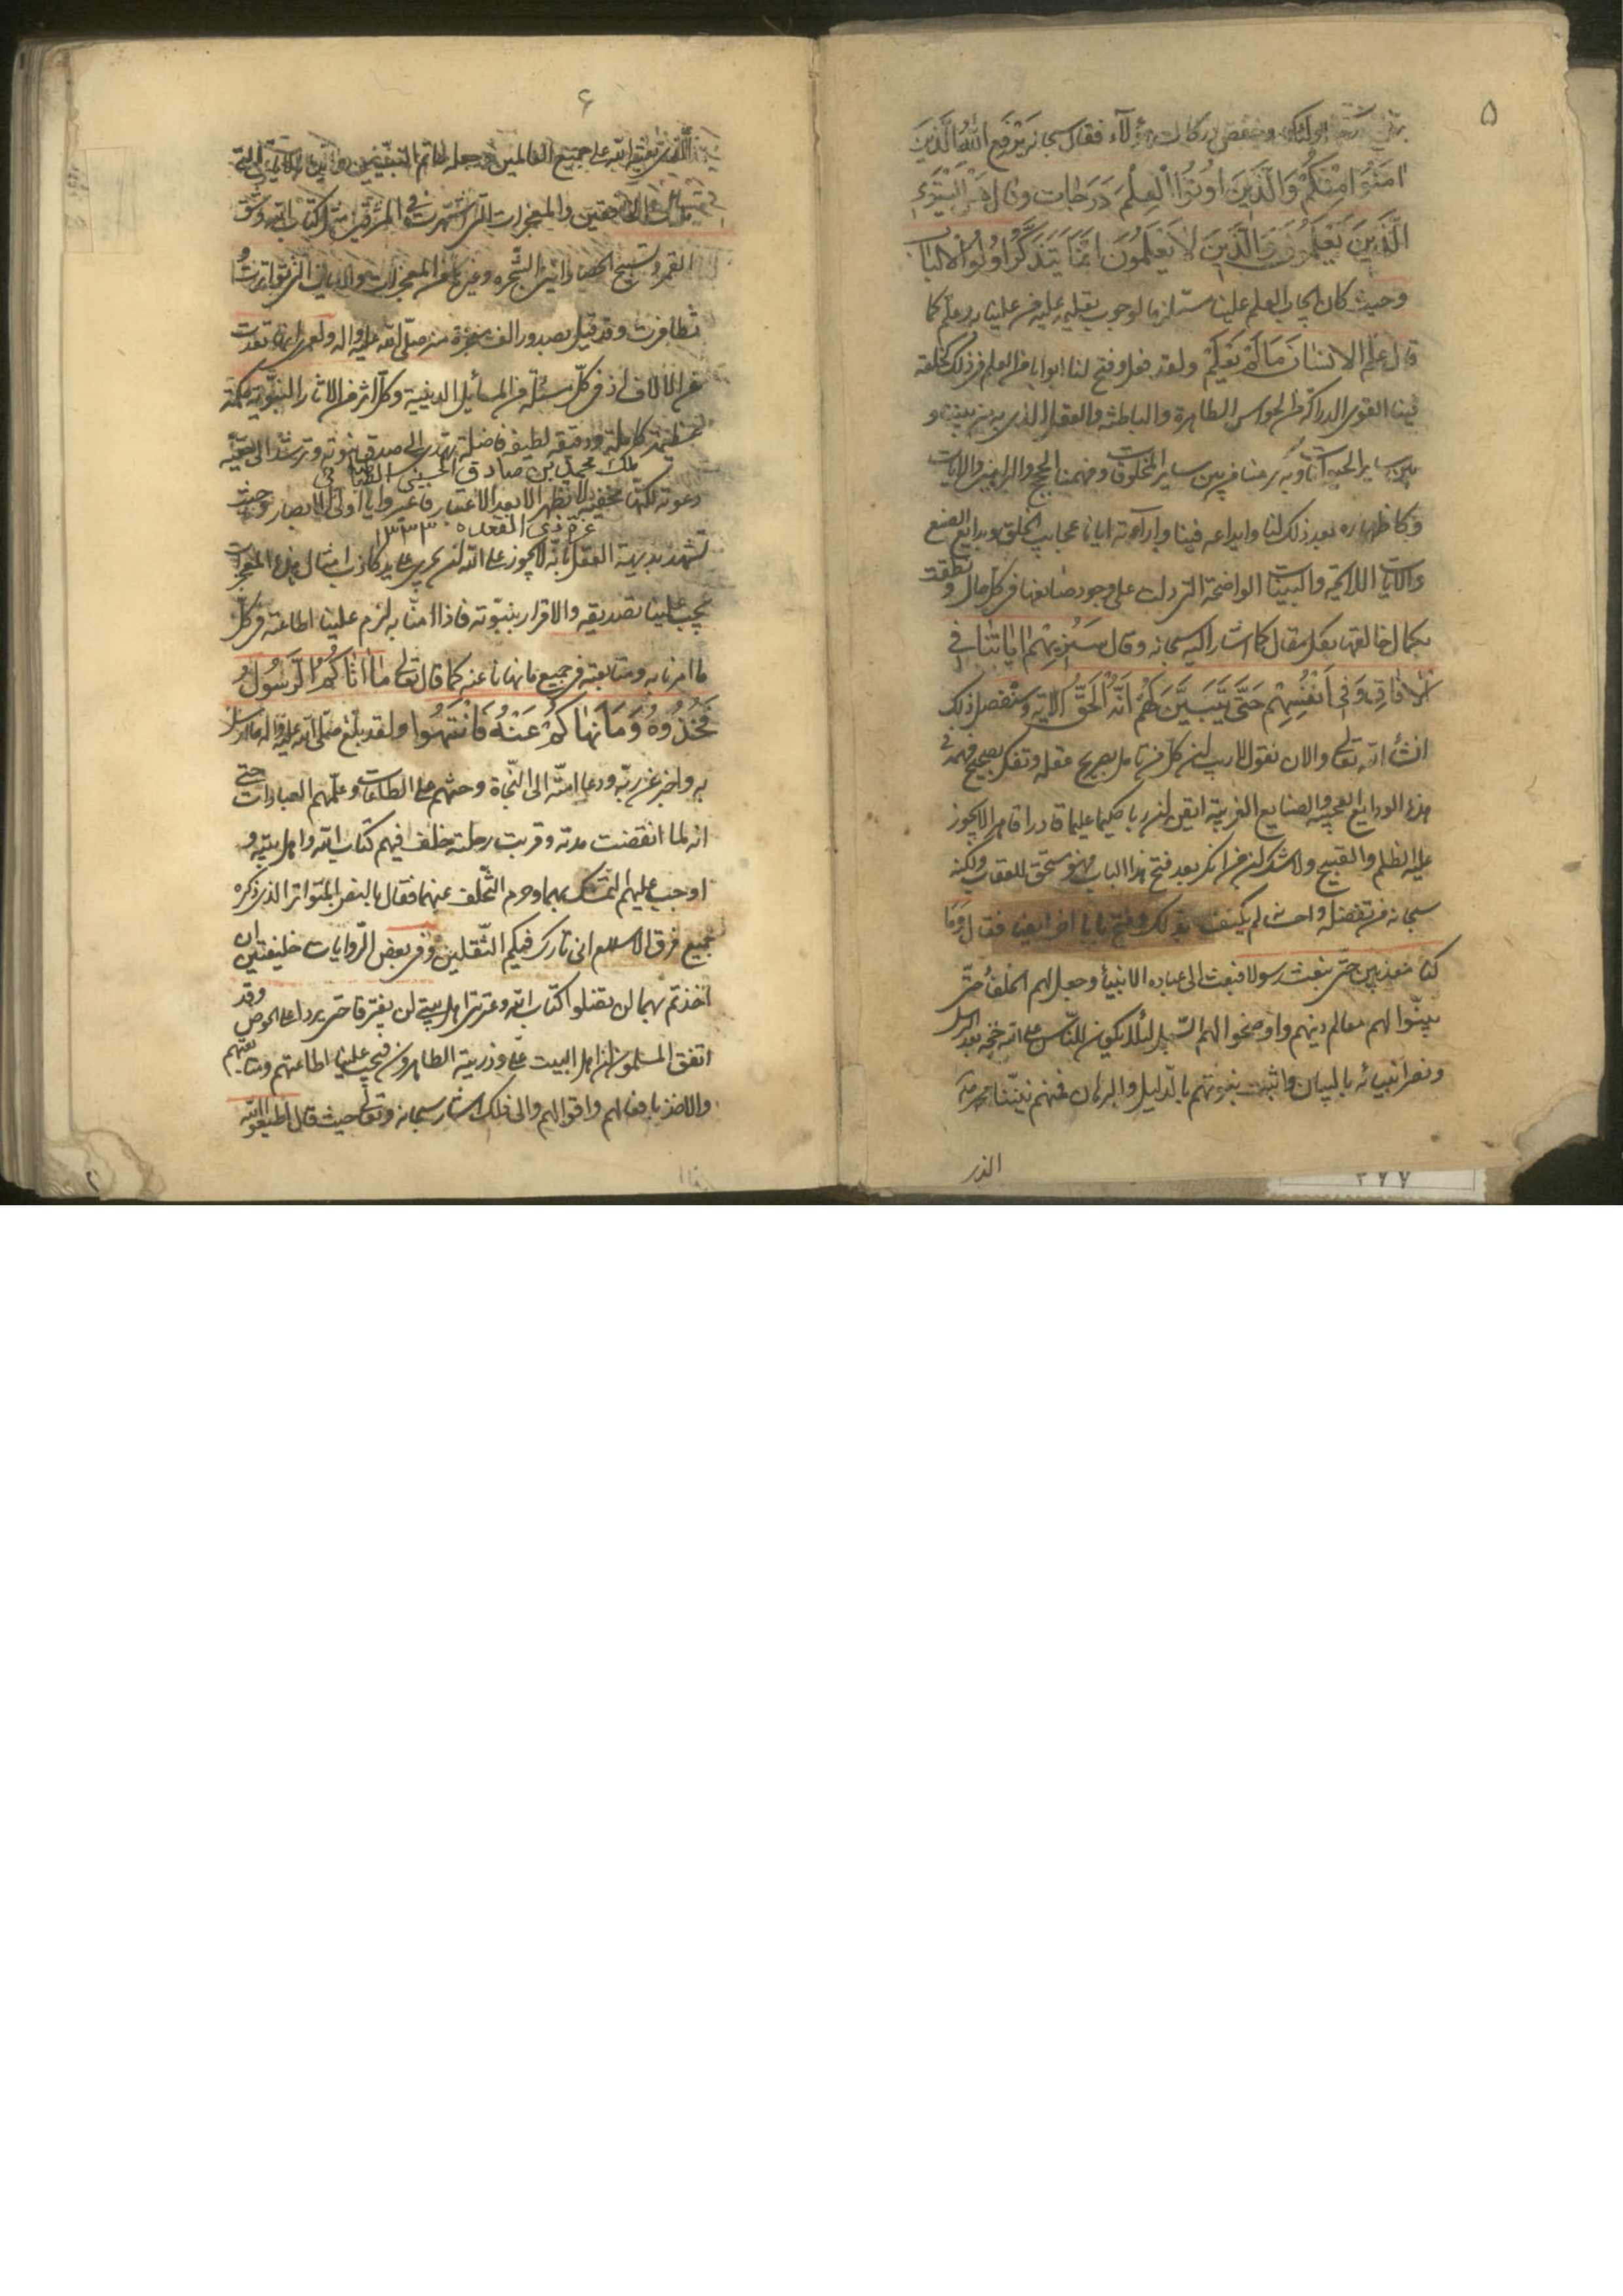 ۵
اولئك وخفض دركات هؤلاء فقال سبحانه يَرْفَعِ اللهُ الَّذينَ
امَنُوا مِنْكُمْ وَالَّذينَ اوُتُوا الْعِلْمَ دَرَجات وقال هَلْ يَسْتَوِي
الَّذينَ يَعْلَمُونَ وَالَّذينَ لا يَعْلَمُونَ اِنَّمَا يَتَذَكَّرُ اُولُوا الالباب
وحيث كان ايجاب العلم علينا مستلزما لوجوب تعليمه عليه فمن علينا به وعلم كما
قال عَلَّمَ الاِنْسانَ مَا لَمْ يَعْلَمْ ولقد فعل وفتح لنا ابوابا من العلم فمن ذلك خلقه
فينا القوى الدراكة من الحواس الظاهرة والباطنة والعقل الذي به بيننا و
بين ساير الحيوانات وكرمنا من بين ساير المخلوقات وفهمنا الحجج والبراهين والايات
وكاظهاره بعد ذلك لنا وابداعه فينا وارآءته ايانا عجايب الخلق وبدايع الصنع
والآيات اللايحة والبينات الواضحة التي دلت على وجود صانعها في كل حال ونطقت
بكمال خالقها بكل مقال كما اشار اليه سبحانه وقال سَنُريهِمْ اياتِنا فِي
الافاقِ وَفي اَنْفُسِهِمْ حَتّى يَتَبَيَّنَ لَهُمْ اَنَّهُ الْحَقُّ الاية وسنفصل ذلك
انشاء الله تعالى والان نقول لا ريب ان كل من تامل بصريح عقله وتفكر بصحيح فهمه في
هذه الودايع العجيبة والصنايع الغريبة ايقن ان له ربا حكيما عليما قادرا قاهرا لا يجوز
عليه الظلم والقبيح ولا شك ان من انكر بعد فتح هذا الباب فهو مستحق للعقاب ولكنه
سبحانه من تفضله واحسانه لم يكتف بذلك وفتح بابا اخر ايضا فقال وَمَا
كنا معذبين حتى نبعث رسولا فبعث الى عباده الانبياء وجعل لهم الخلفاء حتى
بينوا لهم معالم دينهم واوضحوا لهم السبيل لئلا يكون للناس على الله حجة بعد الرسل
ونصر انبيائه بالبيان واثبت نبوتهم بالدليل والبرهان فمنهم نبينا محمد
الذي
۶
الذي بعثه الله على جميع العالمين وجعله خاتم النبيين
الخافقين والمعجزات التي اشتهرت في المشرقين مثل كتاب الله وشق
القمر وتسبيح الحصا واتيان الشجرة وغيرها من المعجزات والايات التي تواترت و
تظافرت وقد قيل بصدور الف معجزة منه صلى الله عليه واله ولعمري انها تعدت
عن الالاف اذ في كل مسئلة من المسايل الدينية وكل اثر من الاثار النبوية حكمة
عظيمة كاملة ودقيقة لطيفة فاضلة تهتدى الى صدق نبوته وترشد الى حقية
ملك محمد بن صادق الحسيني الطباطبائي
دعوته لكنها مخفية لا تظهر الا بعد الاعتبار فاعتبروا يا اولى الابصار وحيث
غرة ذي القعدة ١٣٣٣
تشهد بديهة العقل بانه لا يجوز على الله ان يجرى على يد كاذب امثال هذه المعجزات
يجب علينا تصديقه والاقرار بنبوته فاذا امنا به لزم علينا اطاعته في كل
ما امرنا به ومتابعته في جميع ما نهانا عنه كما قال تعالى ما اتاكُمُ الرَّسُولُ
فَخُذُوهُ وَمَا نَهاكُمْ عَنْهُ فَانْتَهُوا ولقد بلغ صلى الله عليه واله ما ارسل
به واخبر عن ربه ودعا امته الى النجاة وحثهم على الطاعات وعلمهم العبادات حتى
انه لما انقضت مدته وقربت رحلته خلف فيهم كتاب الله واهل بيته و
اوجب عليهم التمسك بهما وحرم التخلف عنهما فقال بالنص المتواتر الذي ذكره
جميع فرق الاسلام اني تارك فيكم الثقلين وفي بعض الروايات خليفتين ان
اخذتم بهما لن تضلوا كتاب الله وعترتي اهل بيتي لن يفترقا حتى يردا على الحوض وقد
اتفق المسلمون ان اهل البيت علي وذريته الطاهرون فيجب علينا اطاعتهم ومتابعتهم
والاخذ بافعالهم واقوالهم والى ذلك اشار سبحانه وتعالى حيث قال اطيعوا الله